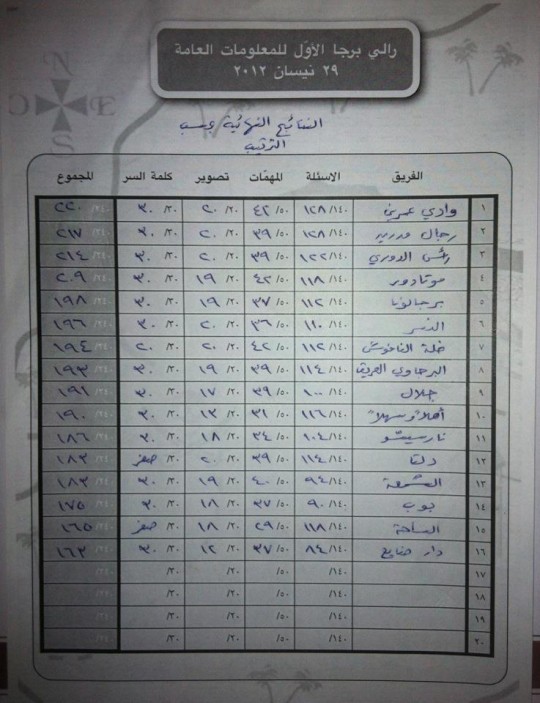 رالي برجا الأوّل للمعلومات العامة
٢٩ نيسان ٢٠١٢
النتائج النهائية بحسب
الترتيب
الفريق الاسئلة المهمّات تصوير كلمة السر المجموع
١ وادي عمريني ١٢٨/١٤٠ ٤٢/٥٠ ٢٠/٢٠ ٣٠/٣٠ ٢٢٠/٢٤٠
٢ رجال مدريد ١٢٨/١٤٠ ٣٩/٥٠ ٢٠/٢٠ ٣٠/٣٠ ٢١٧/٢٤٠
٣ رئس الدوري ١٢٥/١٤٠ ٣٩/٥٠ ٢٠/٢٠ ٣٠/٣٠ ٢١٤/٢٤٠
٤ موتادور ١١٨/١٤٠ ٤٢/٥٠ ١٩/٢٠ ٣٠/٣٠ ٢٠٩/٢٤٠
٥ برجالونا ١١٢/١٤٠ ٣٧/٥٠ ١٩/٢٠ ٣٠/٣٠ ١٩٨/٢٤٠
٦ النسر ١١٠/١٤٠ ٣٦/٥٠ ٢٠/٢٠ ٣٠/٣٠ ١٩٦/٢٤٠
٧ خلة الناموس ١١٢/١٤٠ ٤٢/٥٠ ٢٠/٢٠ ٢٠/٣٠ ١٩٤/٢٤٠
٨ البرجاوي العريق ١١٤/١٤٠ ٣٩/٥٠ ١٩/٢٠ ٣٠/٣٠ ١٩٣/٢٤٠
٩ جلال ١٠٠/١٤٠ ٣٩/٥٠ ١٧/٢٠ ٣٠/٣٠ ١٩١/٢٤٠
١٠ أهلاً وسهلاً ١١٦/١٤٠ ٣١/٥٠ ١٣/٢٠ ٣٠/٣٠ ١٩٠/٢٤٠
١١ نارسيسو ١٠٤/١٤٠ ٣٤/٥٠ ١٨/٢٠ ٣٠/٣٠ ١٨٦/٢٤٠
١٢ دلتا ١٢٤/١٤٠ ٣٩/٥٠ ٢٠/٢٠ صفر/٣٠ ١٨٣/٢٤٠
١٣ الشمعة ٩٤/١٤٠ ٤٠/٥٠ ١٩/٢٠ ٣٠/٣٠ ١٨٣/٢٤٠
١٤ بوب ٩٠/١٤٠ ٣٧/٥٠ ١٨/٢٠ ٣٠/٣٠ ١٧٥/٢٤٠
١٥ الساحة ١١٨/١٤٠ ٢٩/٥٠ ١٨/٢٠ صفر/٣٠ ١٦٥/٢٤٠
١٦ دار صنايع ٨٤/١٤٠ ٣٧/٥٠ ١٢/٢٠ ٣٠/٣٠ ١٦٣/٢٤٠
١٧ /١٤٠ /٥٠ /٢٠ /٣٠ /٢٤٠
١٨ /١٤٠ /٥٠ /٢٠ /٣٠ /٢٤٠
١٩ /١٤٠ /٥٠ /٢٠ /٣٠ /٢٤٠
٢٠ /١٤٠ /٥٠ /٢٠ /٣٠ /٢٤٠